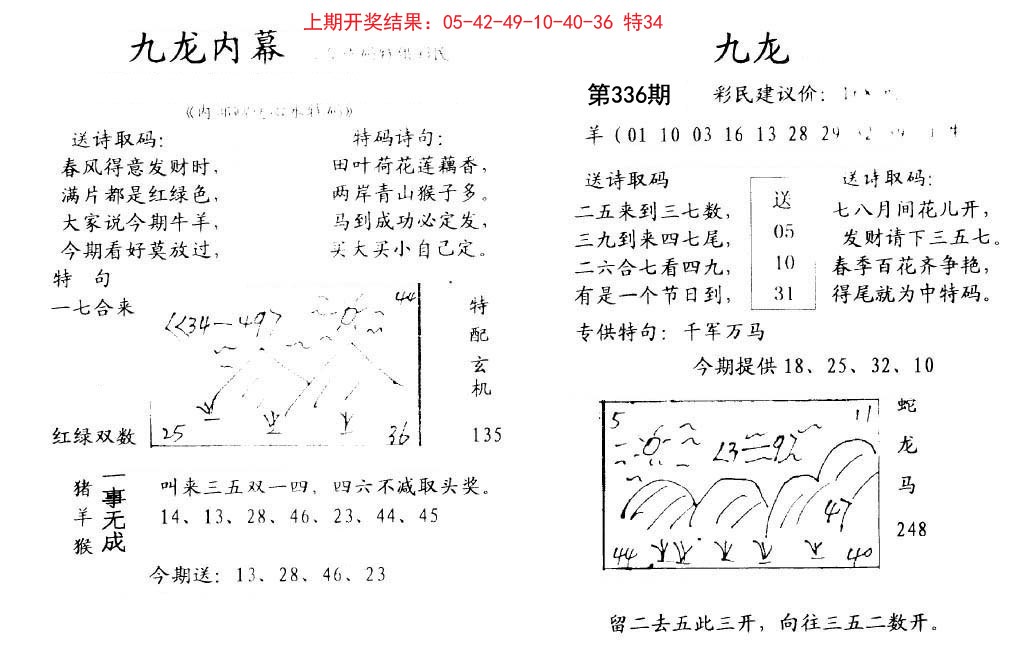 上期开奖结果：05-42-49-10-40-36 特34
九龙内幕
送诗取码：
春风得意发财时，
满片都是红绿色，
大家说今期牛羊，
今期看好莫放过，
特码诗句：
田叶荷花莲藕香，
两岸青山猴子多。
马到成功必定发，
买大买小自己定。
特 句
一七合来
红绿双数
44
25
36
特配玄机
135
猪羊猴
一事无成
叫来三五双一四，四六不减取头奖。
14、13、28、46、23、44、45
今期送：13、28、46、23
九龙
第336期 彩民建议价：
羊（01 10 03 16 13 28 29
送诗取码
二五来到三七数，
三九到来四七尾，
二六合七看四九，
有是一个节日到，
送
05
10
31
送诗取码：
七八月间花儿开，
发财请下三五七。
春季百花齐争艳，
得尾就为中特码。
专供特句：千军万马
今期提供 18、25、32、10
5
11
47
44
40
蛇
龙
马
248
留二去五此三开，向往三五二数开。